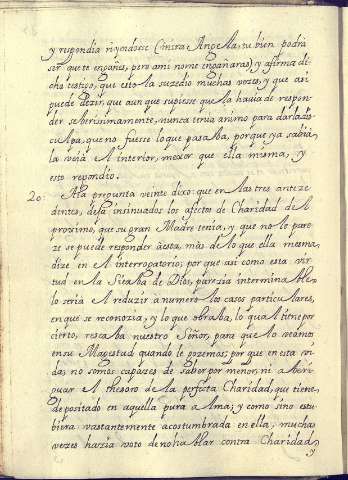 y respondia riyendose (mira Angela, tu bien podrá
ser que te engañes, pero a mi no me engañaras) y afirma di-
cho testigo, que esto la suzedio muchas vezes, y que asi
puede dezir, que aun que supiesse que la havia de respon-
der asperissimamente, nunca tenia animo para dar la dis-
culpa, que no fuesse lo que pasaba, porque ya sabia,
la veia el interior, mexor que ella misma, y
esto repondio.
20. A la pregunta veinte dixo: que en las tres anteze-
dentes, dexa insinuados los afectos de Charidad del
proximo, que su gran Madre tenia, y que no le pare-
ze se puede responder à esta, màs de lo que ella mesma,
dize en el interrogatorio; por que asi como esta vir-
tud en la Sierba de Dios, parezia interminable,
lo seria el reduzir a numero los casos particulares,
en que se reconozia, y lo que obraba, lo qual tiene por
cierto, reserba nuestro Señor, para que lo veamos
en su Magestad quando le gozemos; por que en esta vi-
da, no somos capazes de saber por menor, ni aberi-
guar el thesoro de la perfecta Charidad, que tiene,
depositado en aquella pura Alma; y como si no estu-
biera vastantemente acostumbrada en ella, muchas
vezes hazia voto de no hablar contra Charidad,
y